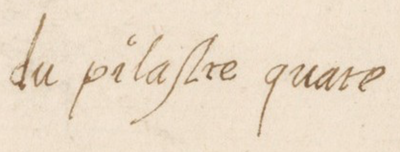 du pilastre quare